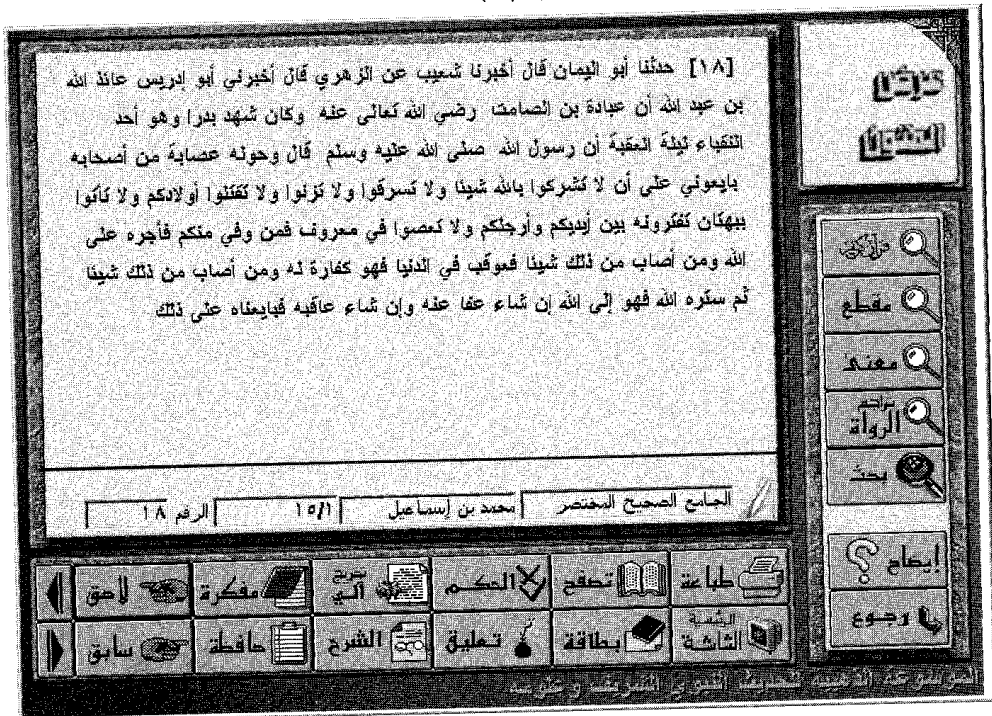 [١٨] حدثنا أبو اليمان قال أخبرنا شعيب عن الزهري قال أخبرني أبو إدريس عائذ الله
بن عبد الله أن عبادة بن الصامت رضي الله تعالى عنه وكان شهد بدرا وهو أحد
النقباء ليلة العقبة أن رسول الله صلى الله عليه وسلم قال وحوله عصابة من أصحابه
بايعوني على أن لا تشركوا بالله شيئا ولا تسرقوا ولا تزنوا ولا تقتلوا أولادكم ولا تأتوا
ببهتان تفترونه بين أيديكم وأرجلكم ولا تعصوا في معروف فمن وفى منكم فأجره على
الله ومن أصاب من ذلك شيئا فعوقب في الدنيا فهو كفارة له ومن أصاب من ذلك شيئا
ثم ستره الله فهو إلى الله إن شاء عفا عنه وإن شاء عاقبه فبايعناه على ذلك
الجامع الصحيح المختصر
محمد بن إسماعيل
١٥/١
الرقم ١٨
مقطع
معنى
تراجم الرواة
بحث
إيضاح
رجوع
طباعة
تصفح
الحكم
تخريج آلي
مفكرة
لاحق
الشاشة
بطاقة
تعليق
الشرح
حافظة
سابق
الموسوعة الذهبية للحديث النبوي الشريف وعلومه